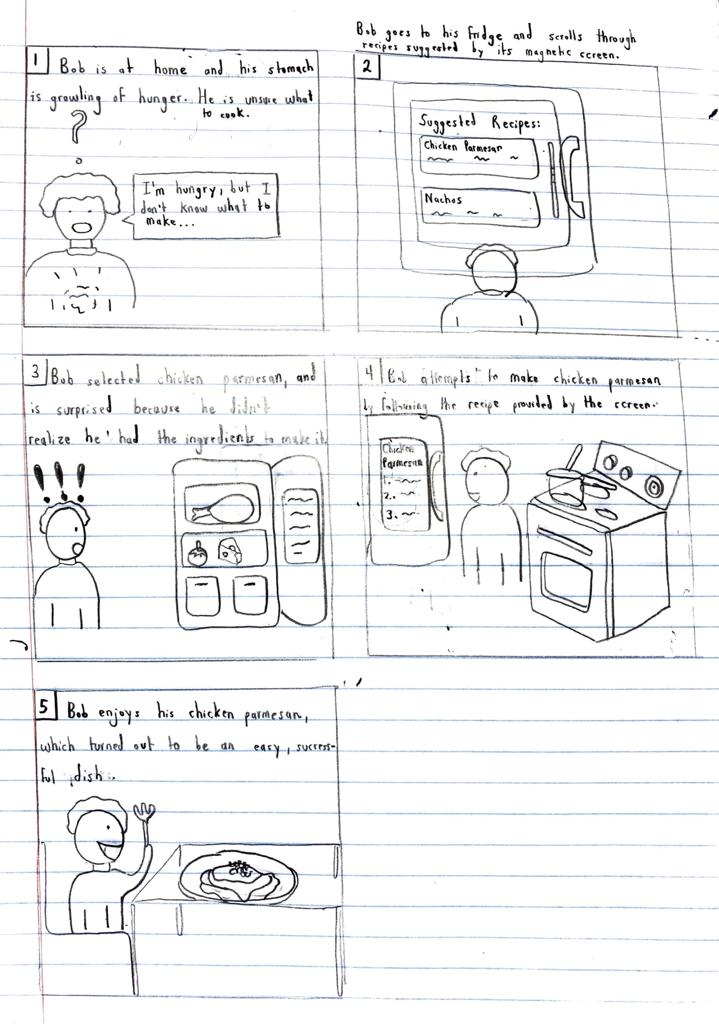 1 Bob is at home and his stomach
is growling of hunger. He is unsure what
to cook.
?
I'm hungry, but I
don't know what to
make...
Bob goes to his fridge and scrolls through
recipes suggested by its magnetic screen.
2
Suggested Recipes:
Chicken Parmesan
Nachos
3 Bob selected chicken parmesan, and
is surprised because he didn't
realize he had the ingredients to make it.
!!!
4 Bob attempts to make chicken parmesan
by following the recipe provided by the screen.
Chicken
Parmesan
1.
2.
3.
5 Bob enjoys his chicken parmesan,
which turned out to be an easy, success-
ful dish.